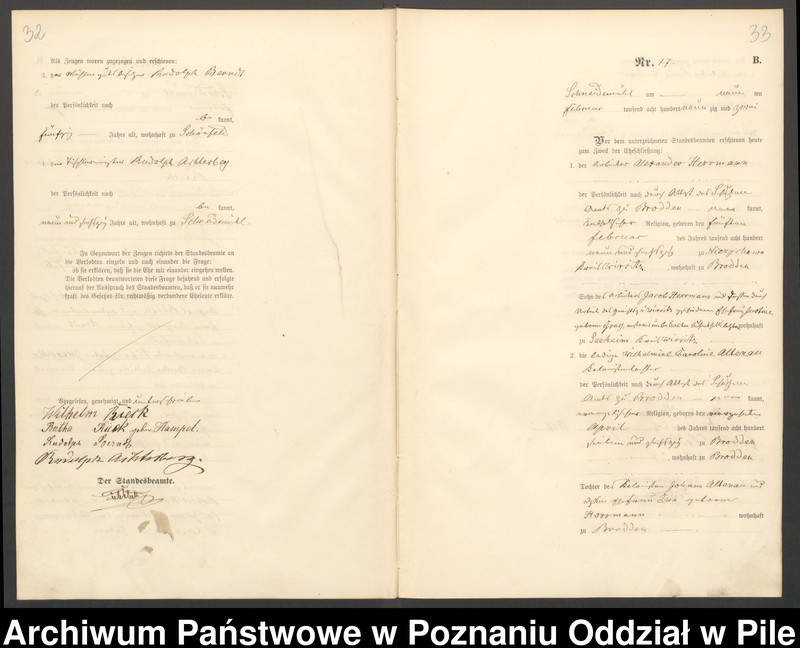 32
Als Zeugen waren zugezogen und erschienen:
3. der Mühlengutsbesitzer Rudolph Berndt
der Persönlichkeit nach
be kannt,
fünfzig Jahre alt, wohnhaft zu Schönfeld
4. der Tischlermeister Rudolph Achterberg
der Persönlichkeit nach
be kannt,
neun und Jahre alt, wohnhaft zu Schneidemühl.
In Gegenwart der Zeugen richtete der Standesbeamte an
die Verlobten einzeln und nach einander die Frage:
ob sie erklären, daß sie die Ehe mit einander eingehen wollen.
Die Verlobten beantworteten diese Frage bejahend und erfolgte
hierauf der Ausspruch des Standesbeamten, daß er sie nunmehr
kraft des Gesetzes für rechtmäßig verbundene Eheleute erkläre.
Vorgelesen, genehmigt und unterschrieben
Wilhelm
geb. Hampel.
Rudolph Berndt
Rudolph Achterberg.
Der Standesbeamte.
33
Nr. 17. B.
Schneidemühl am neun ten
Februar tausend acht hundert neun zig und zwei
Vor dem unterzeichneten Standesbeamten erschienen heute
zum Zweck der Eheschließung:
1. der Arbeiter Alexander Herrmann
der Persönlichkeit nach durch Attest des Schulzen
Amts zu Brodden kannt,
katholischer Religion, geboren den fünften
Februar des Jahres tausend acht hundert
neun und sechszig zu
Kreis Wirsitz, wohnhaft zu Brodden
Sohn des Arbeiters Jacob Herrmann und dessen durch
wohnhaft
zu Seeheim Kreis Wirsitz
2. die ledige Wilhelmine Karoline Altenau
der Persönlichkeit nach durch Attest des Schulzen
Amts zu Brodden kannt,
evangelischer Religion, geboren den
April des Jahres tausend acht hundert
sieben und sechszig zu Brodden
, wohnhaft zu Brodden
Tochter des Kolonisten Johann Altenau und
dessen Ehefrau Eva geborene
Herrmann wohnhaft
zu Brodden
Archiwum Państwowe w Poznaniu Oddział w Pile